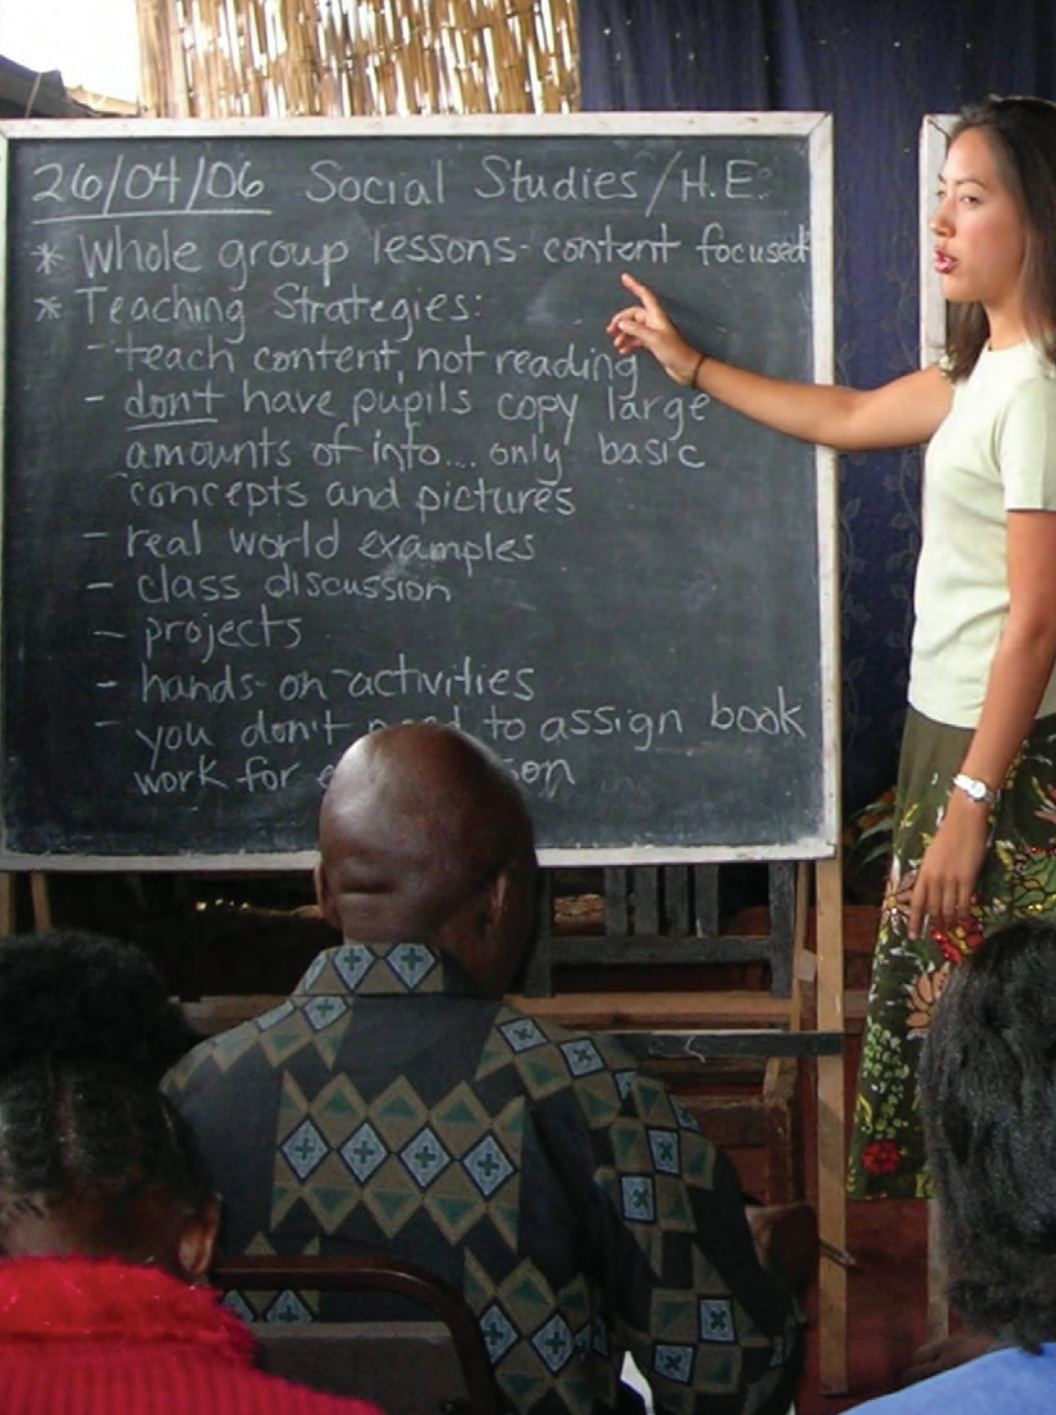 26/04/06 Social Studies/H.E.
* Whole group lessons - content focused
* Teaching Strategies:
- teach content, not reading
- don't have pupils copy large
amounts of info... only basic
concepts and pictures
- real world examples
- class discussion
- projects
- hands-on-activities
- you don't to assign book
work for